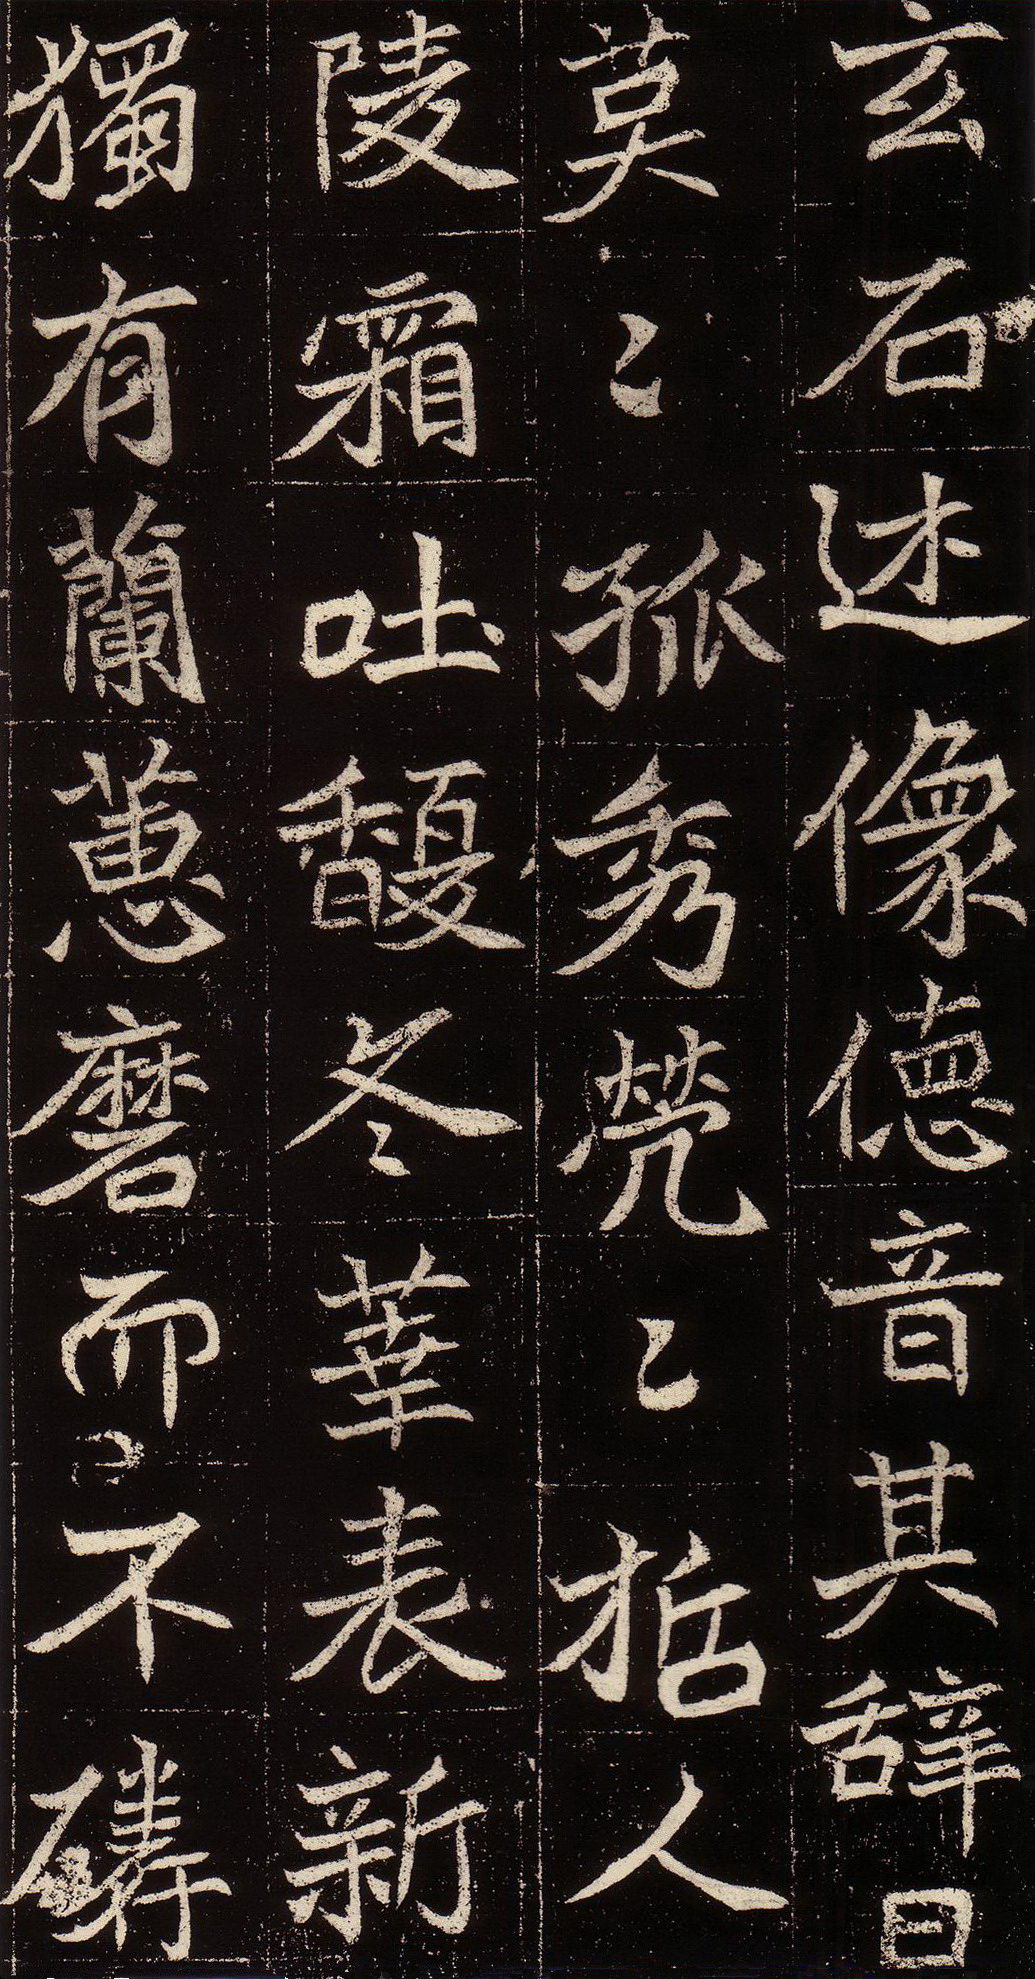 玄石述像德音其辞曰
莫〻孤秀煢〻哲人
陵霜吐馥冬華表新
獨有蘭蕙磨而不磷